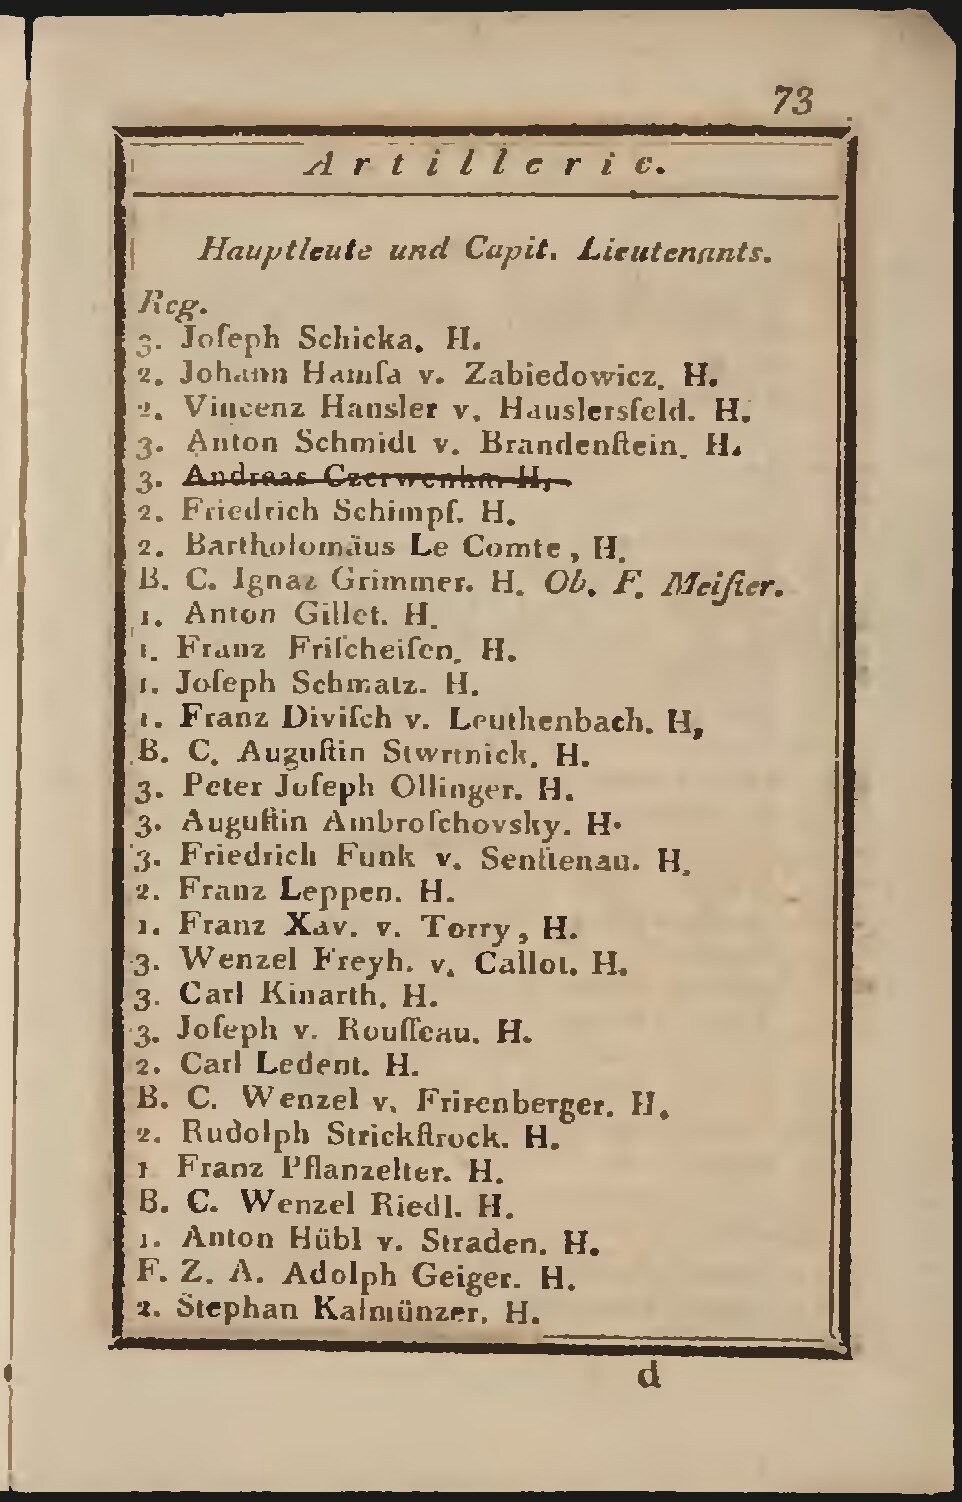 73
Artillerie.
Hauptleute und Capit. Lieutenants.
Reg.
3. Joſeph Schicka. H.
2. Johann Hamſa v. Zabiedowicz. H.
2. Vincenz Hansler v. Hauslersfeld. H.
3. Anton Schmidt v. Brandenſtein. H.
3. Andreas Czerwenka. H.
2. Friedrich Schimpf. H.
2. Bartholomäus Le Comte, H.
B. C. Ignaz Grimmer. H. Ob. F. Meiſter.
1. Anton Gillet. H.
1. Franz Friſcheiſen. H.
1. Joſeph Schmalz. H.
1. Franz Diviſch v. Leuthenbach. H,
B. C. Auguſtin Stwrtnick. H.
3. Peter Joſeph Ollinger. H.
3. Auguſtin Ambroſchovsky. H.
3. Friedrich Funk v. Senftenau. H.
2. Franz Leppen. H.
1. Franz Xav. v. Torry, H.
3. Wenzel Freyh. v. Callot. H.
3. Carl Kinarth. H.
3. Joſeph v. Rouſſeau. H.
2. Carl Ledent. H.
B. C. Wenzel v. Frirenberger. H.
2. Rudolph Strickſtrock. H.
1 Franz Pflanzelter. H.
B. C. Wenzel Riedl. H.
1. Anton Hübl v. Straden. H.
F. Z. A. Adolph Geiger. H.
2. Stephan Kalmünzer. H.
d